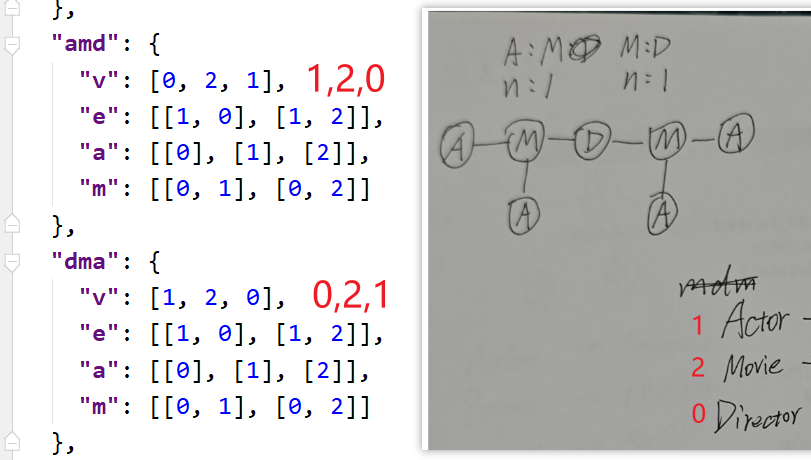 },
"amd": {
"v": [0, 2, 1], 1,2,0
"e": [[1, 0], [1, 2]],
"a": [[0], [1], [2]],
"m": [[0, 1], [0, 2]]
},
"dma": {
"v": [1, 2, 0], 0,2,1
"e": [[1, 0], [1, 2]],
"a": [[0], [1], [2]],
"m": [[0, 1], [0, 2]]
},
A:M M:D
n:1 n:1
A M D M A
A A
mdm
1 Actor
2 Movie
0 Director